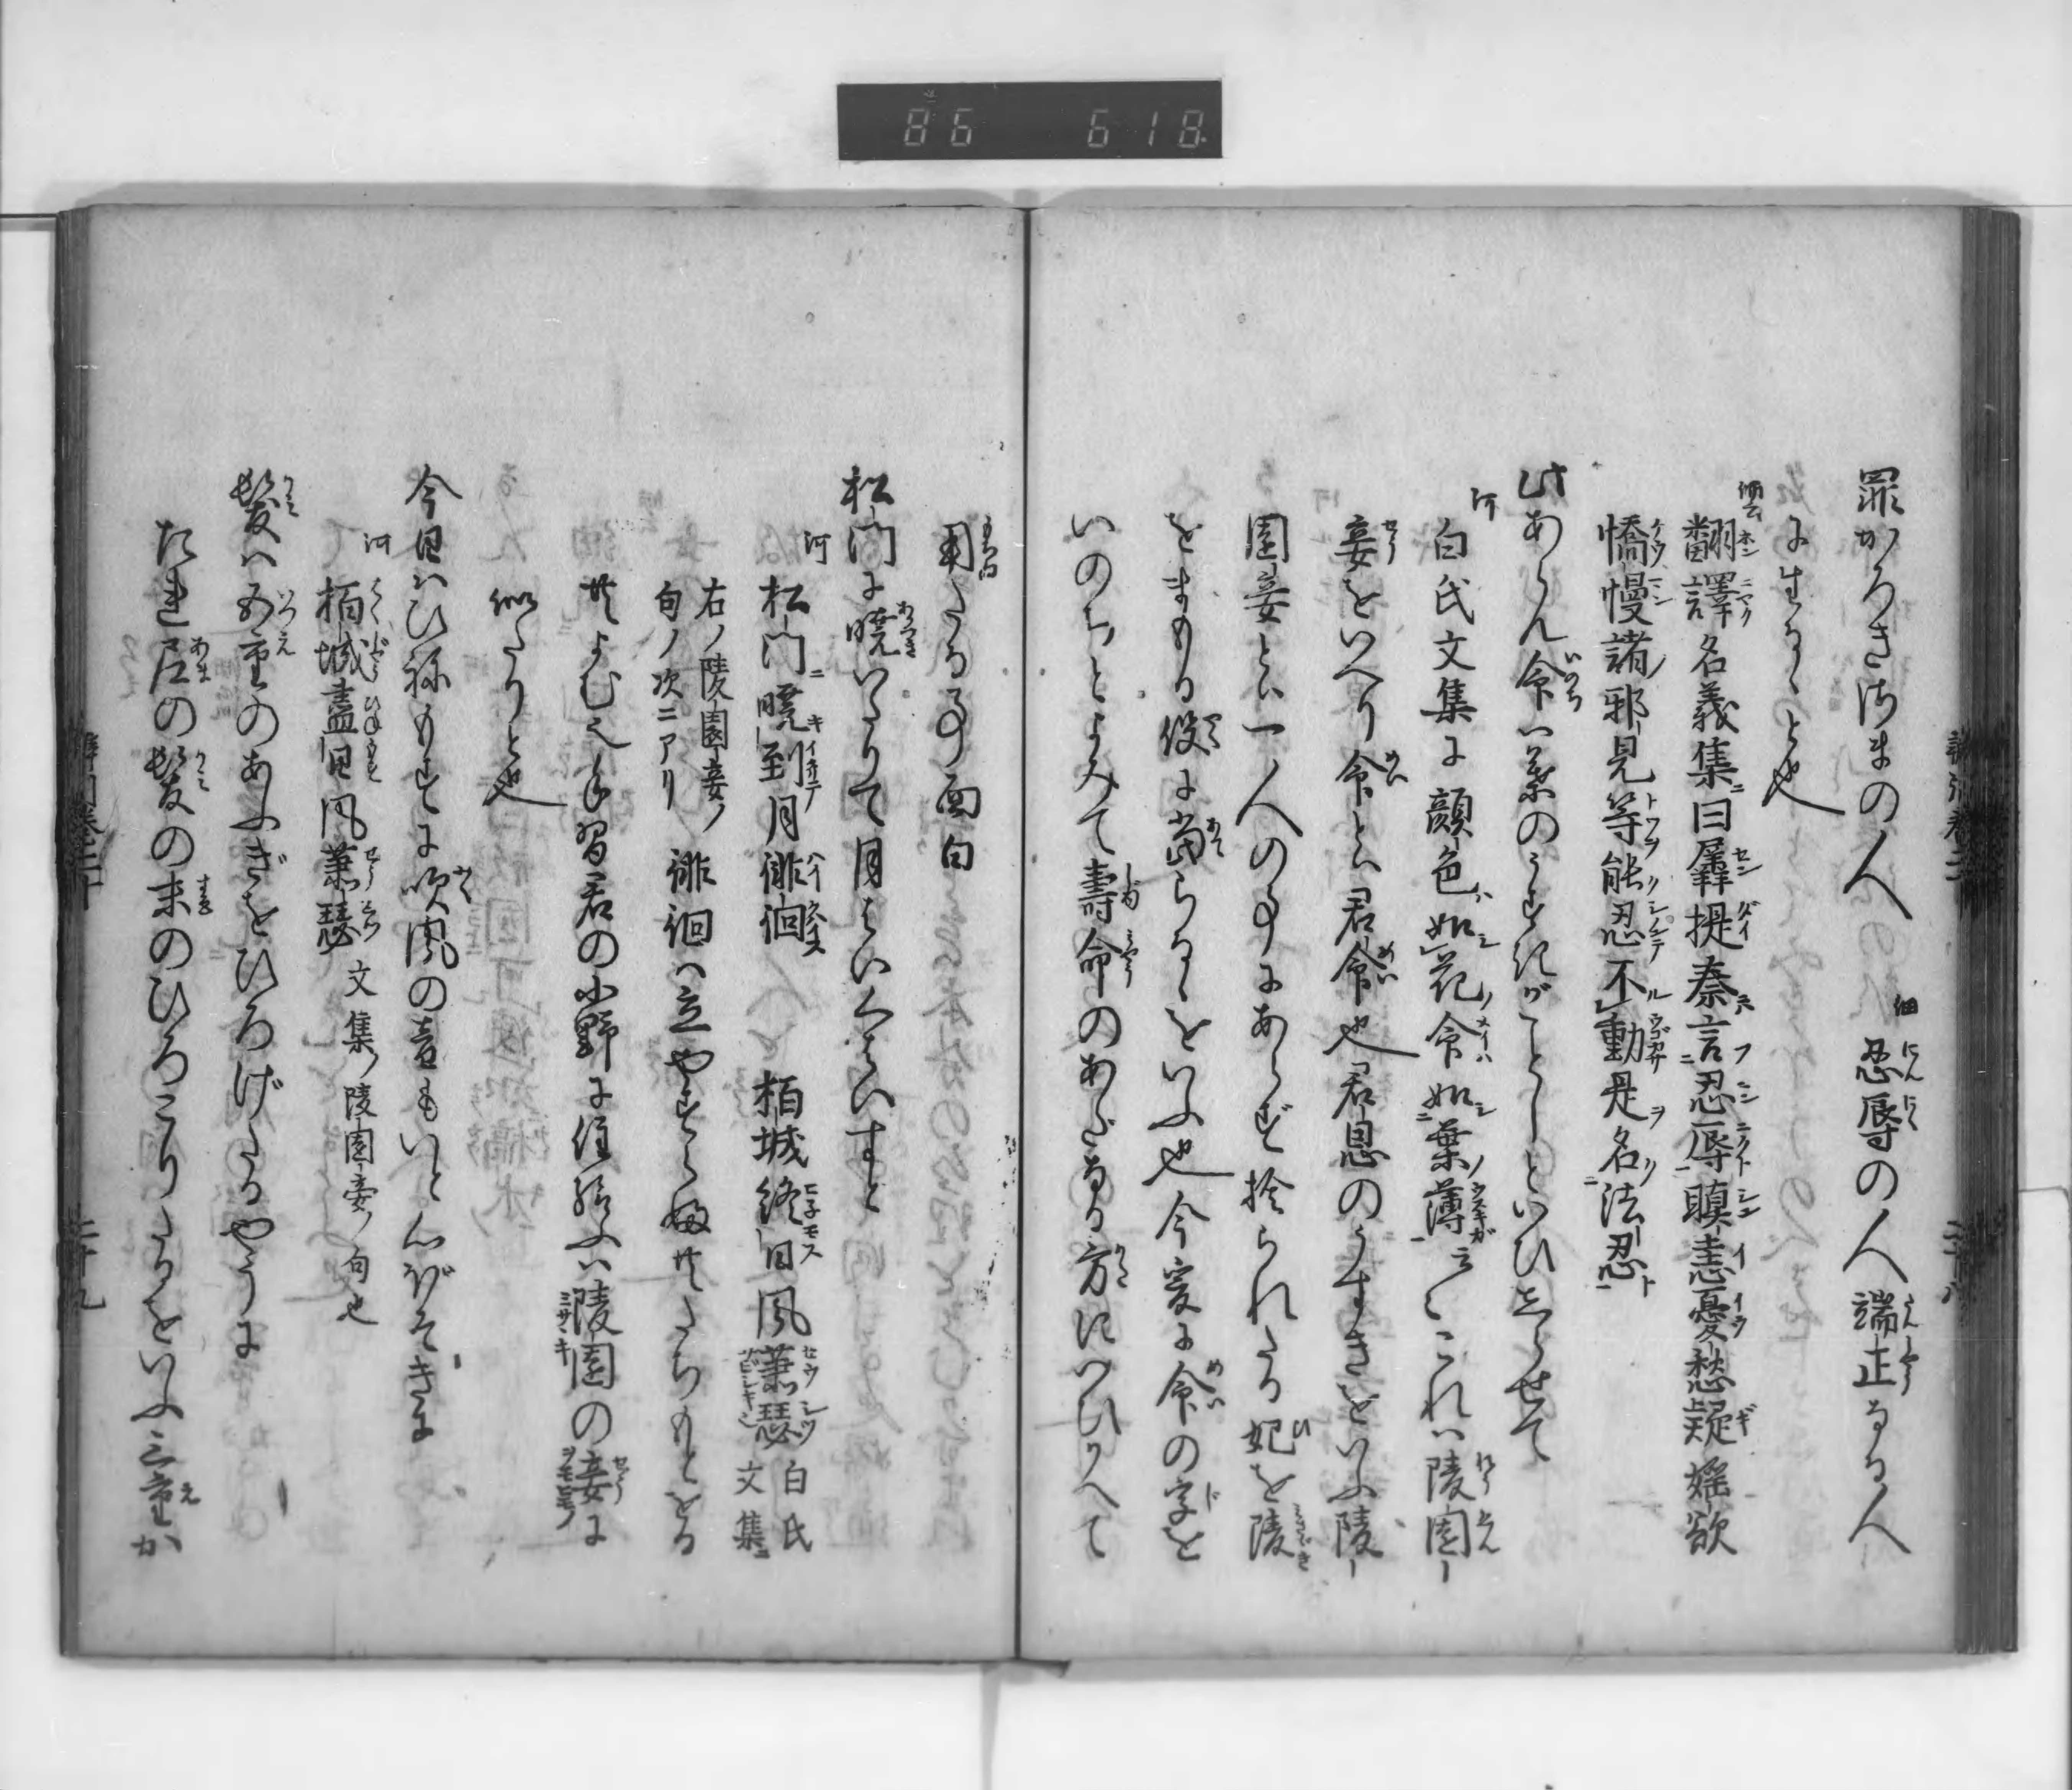 86 618
罪かろきさまの人 細 忍辱の人端正なる人
にむまるゝと也
翻譯名義集曰羼提秦言忍辱瞋恚憂愁疑婬欲
憍慢諸邪見等能忍不動是名法忍
此あらん命は葉のうすきがごとしといひしらせて
河 白氏文集に顔色如花命如葉薄云〻これは陵園
妾をいへり命とは君命也君恩のうすきをいふ陵
園妾とは一人の事にあらず捨られたる妃を陵
をまもる役に當らるゝをいふ也今爰に命の字を
いのちとよみて壽命のあだなる方にいひかへて
用たる事面白
松門に曉いたりて月はいくはいすと
河 松門曉到月徘徊 柏城終日風蕭瑟 白氏文集
右ノ陵園妾ノ句ノ次ニアリ 徘徊は立やすらふ心也たちもとをる
共よむ也手習君の小野に住給ふは陵園の妾に
似たりと也
今日はひねもすに吹風の音もいと心ぼそきに
河 柏城盡日風蕭瑟 文集ノ陵園妾ノ句也
髪は五重のあふぎをひろげたるやうに
たれ尼の髪の末のひろごりたるをいふ三重か